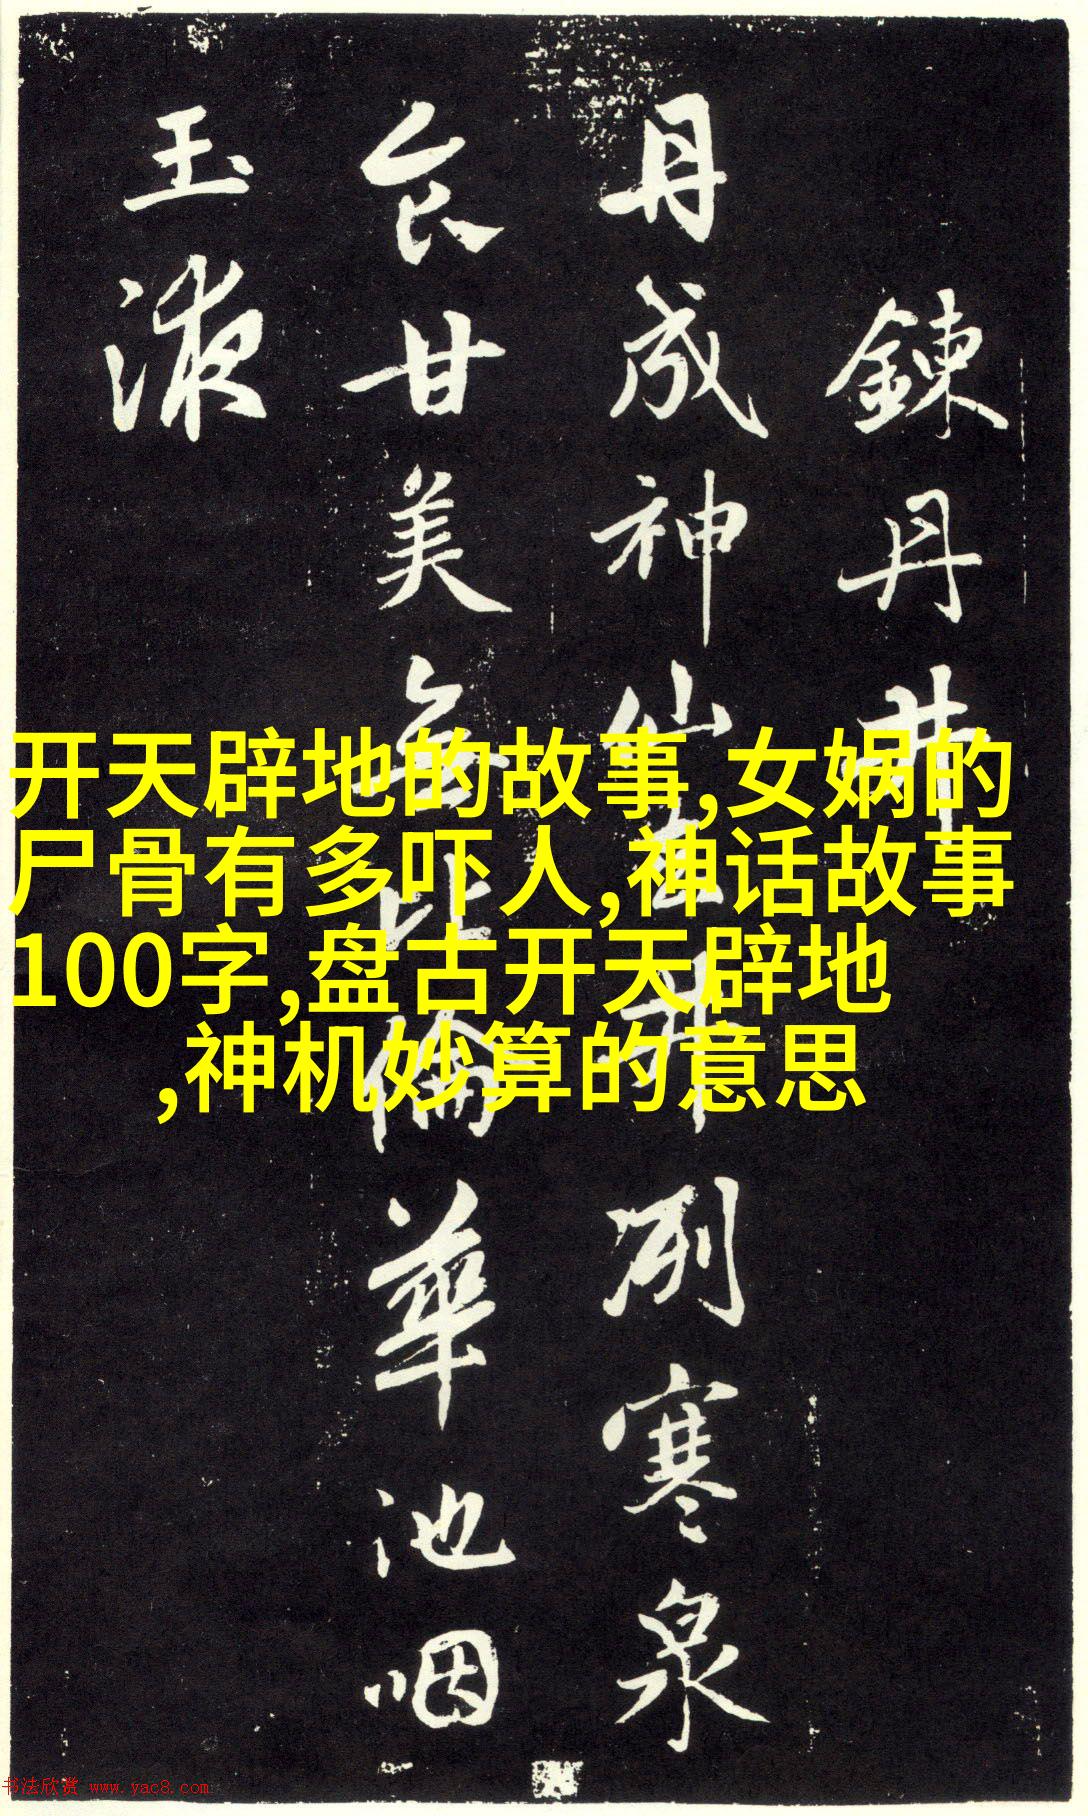 鍊丹井
丹成神仙去井冽寒泉
食甘美無比倫華池咽
玉液
开天辟地的故事,女娲的
尸骨有多吓人,神话故事
100字,盘古开天辟地
,神机妙算的意思
书法欣赏 www.yac8.com